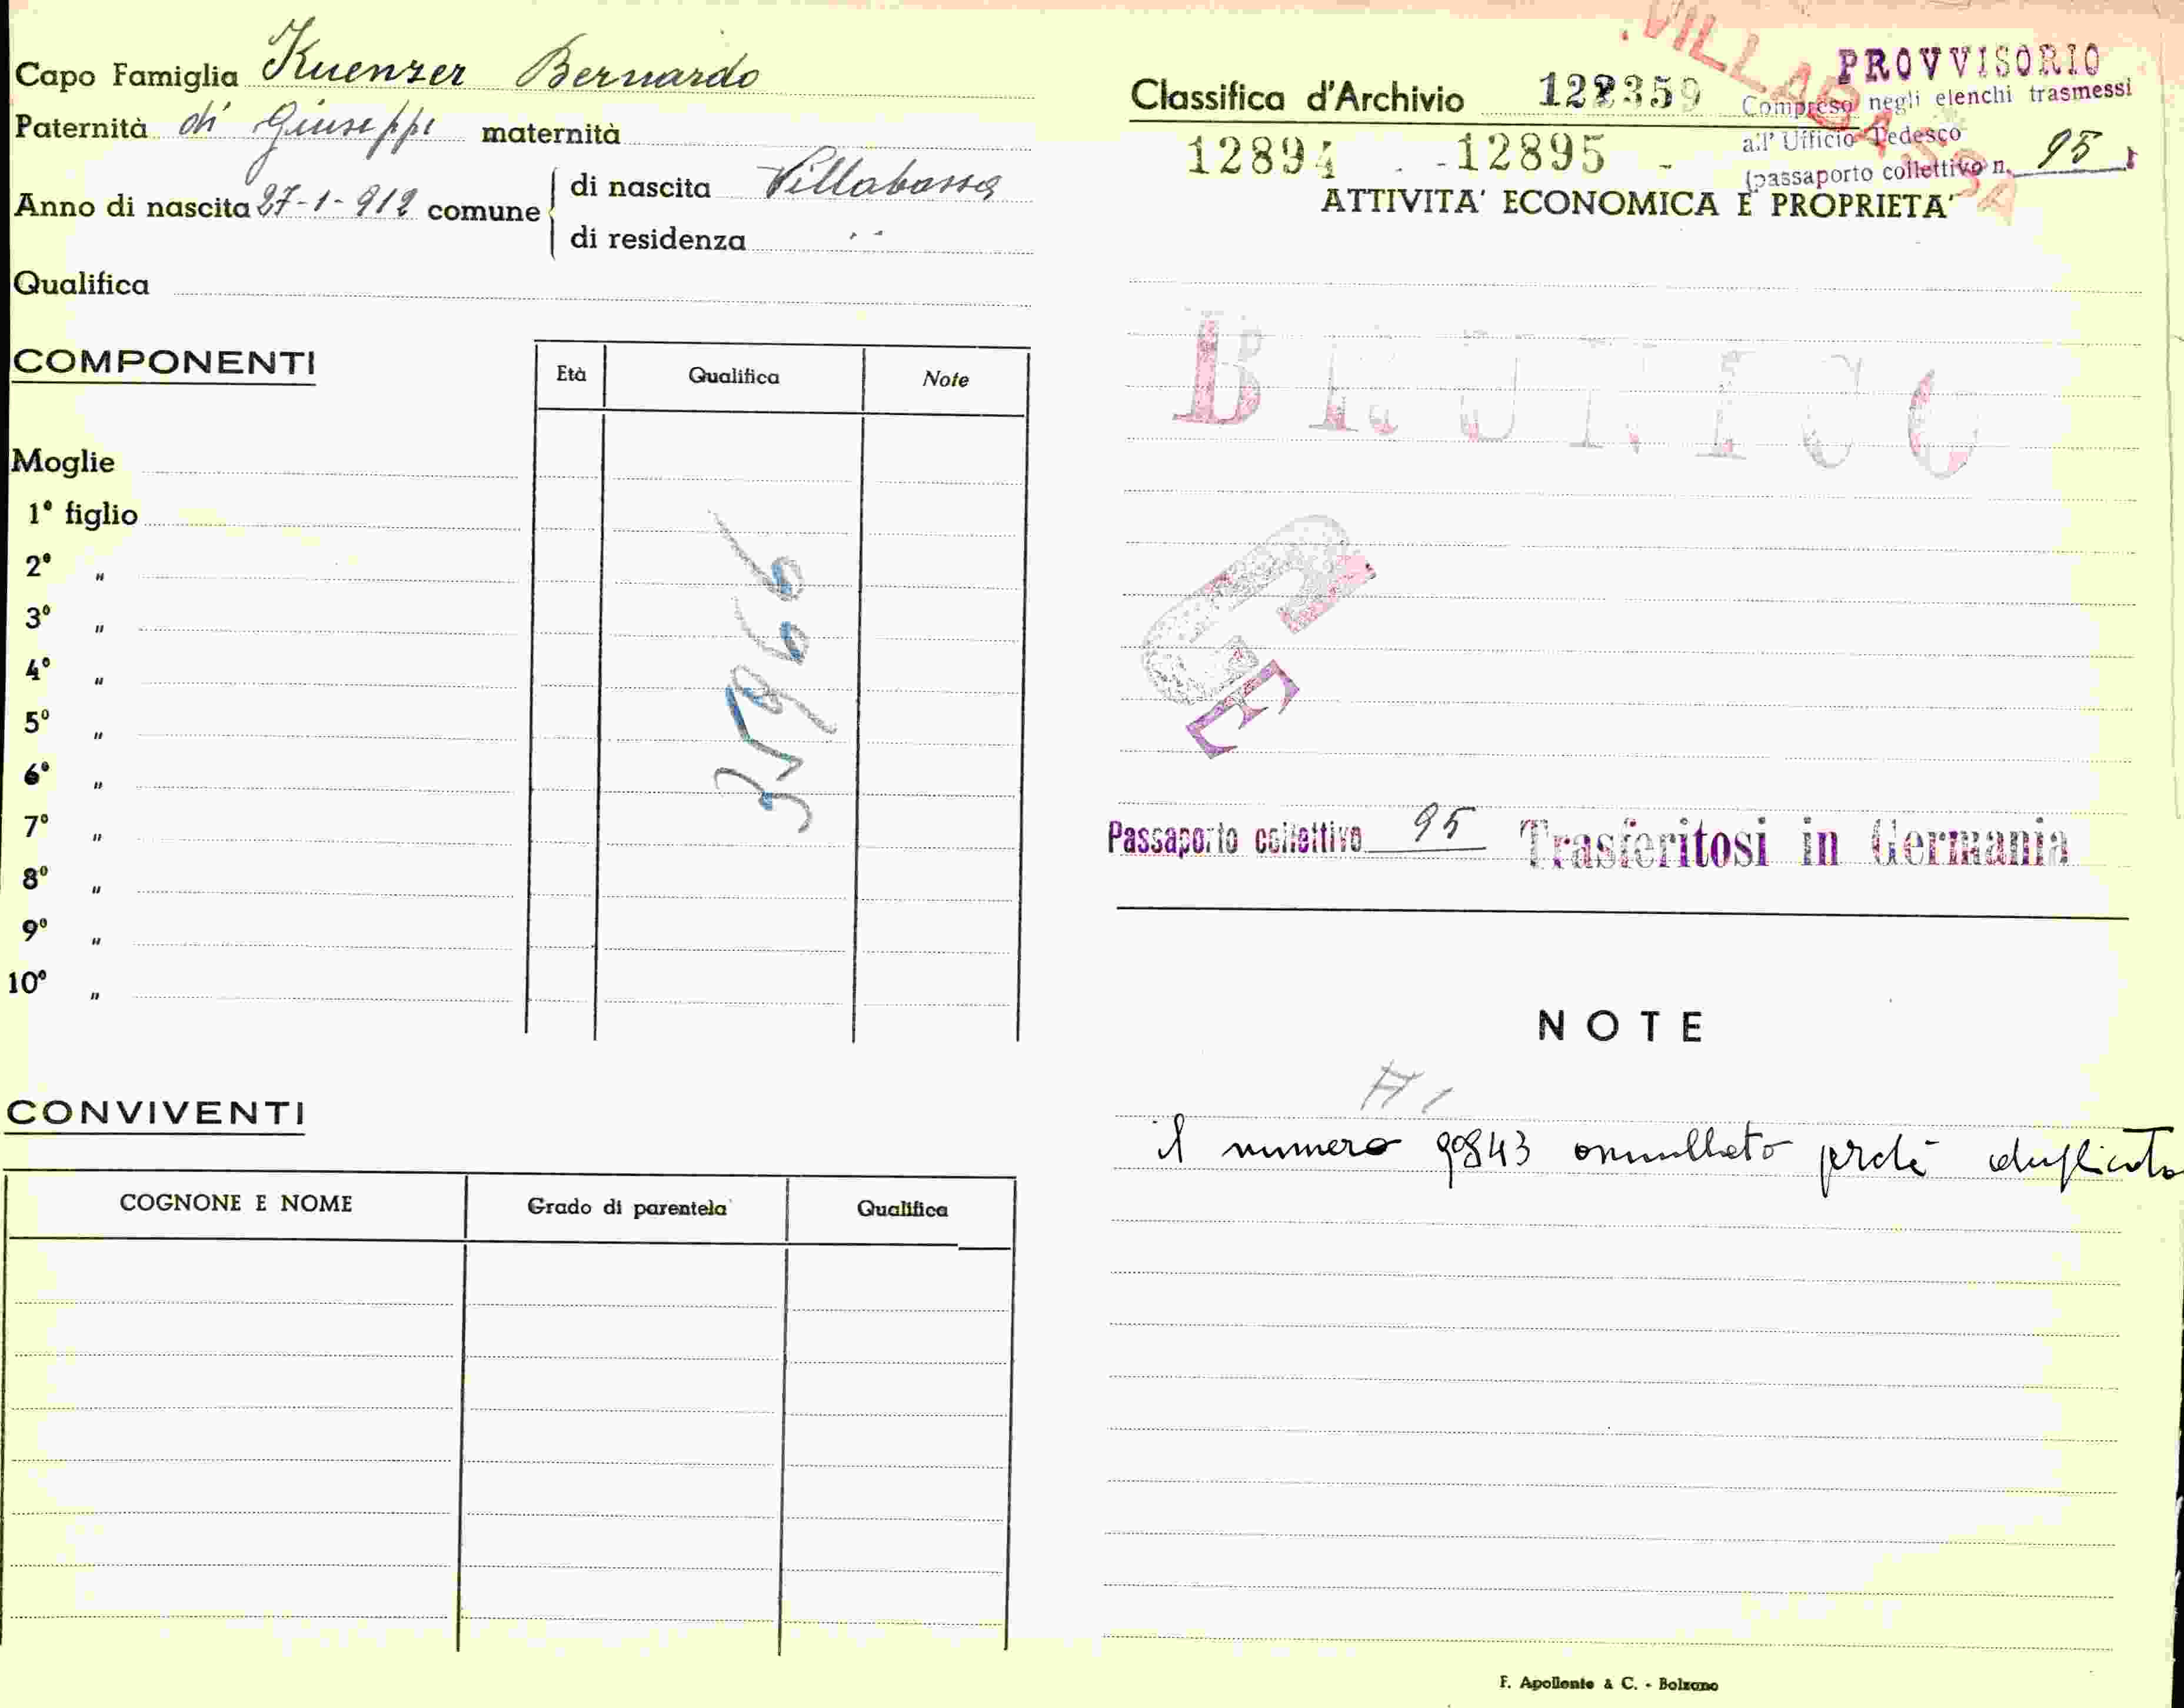 Capo Famiglia Kuenzer Bernardo
Paternità di Giuseppe maternità
Anno di nascita 27-1-912 comune
di nascita Villabassa
di residenza " "
Qualifica
COMPONENTI
Età Qualifica Note
Moglie
1º figlio
2º "
3º "
4º "
5º "
6º "
7º "
8º "
9º "
10º "
35966
CONVIVENTI
COGNONE E NOME Grado di parentela Qualifica
VILLABASSA
PROVVISORIO
Classifica d'Archivio 122359
Compreso negli elenchi trasmessi
all' Ufficio Tedesco
(passaporto collettivo n. 95
12894 - 12895 -
ATTIVITA' ECONOMICA E PROPRIETA'
BRUNICO
E
Passaporto collettivo 95 Trasferitosi in Germania
NOTE
il numero 90843 annullato perchè duplicato
F. Apollonio & C. - Bolzano